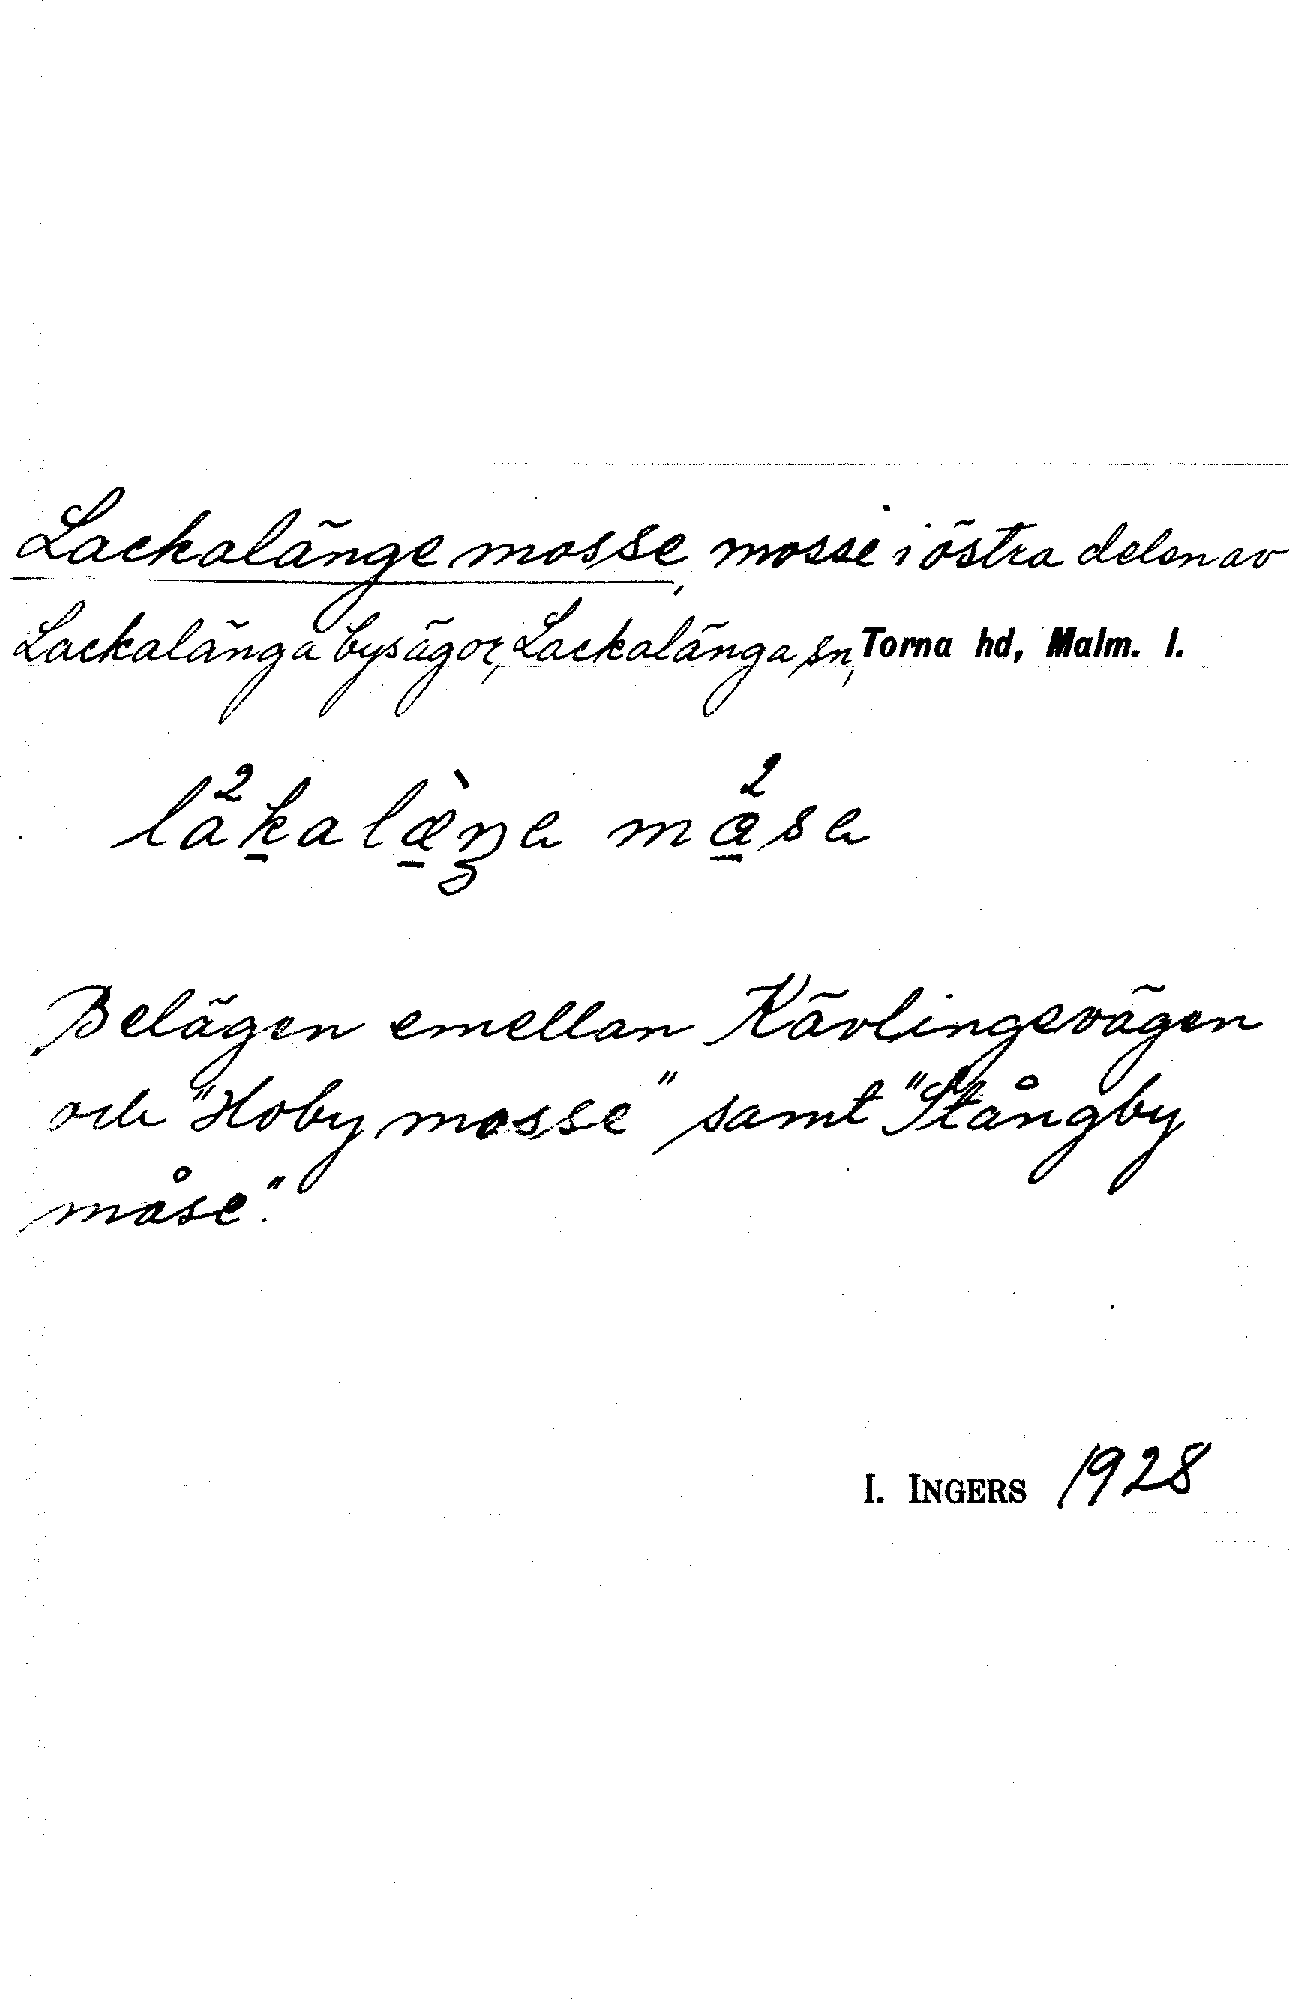 Lackalänge mosse, mosse i östra delen av
Lackalänga bys ägor, Lackalänga sn, Torna hd, Malm. l.
Belägen emellan Kävlingevägen
och "Hoby mosse" samt "Stångby
måse".
I. INGERS 1928